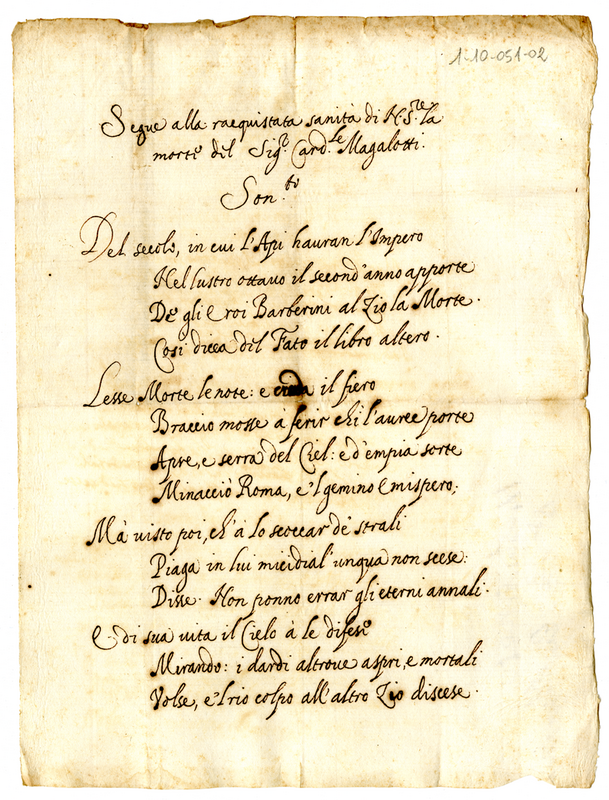 1-10-051-02
Segue alla racquistata sanità di N. S.re la
morte del Sig.r Card.le Magalotti.
Son.to
Del secolo, in cui l'Api hauran l'Impero
Nel lustro ottavo il second'anno apporte
De gli Eroi Barberini al Zio la Morte.
Così dicea del Fato il libro altero.
Lesse Morte le note: e il fiero
Braccio mosse à ferir chi l'auree porte
Apre, e serra del Ciel: e d'empia sorte
Minacciò Roma, e'l gemino Emispero;
Mà visto poi, ch'a lo scoccar de' strali
Piaga in lui micidial' unqua non scese:
Disse. Non ponno errar gli eterni annali.
E di sua vita il Cielo à le difese
Mirando: i dardi altrove aspri, e mortali
Volse, e'l rio colpo all'altro Zio discese.